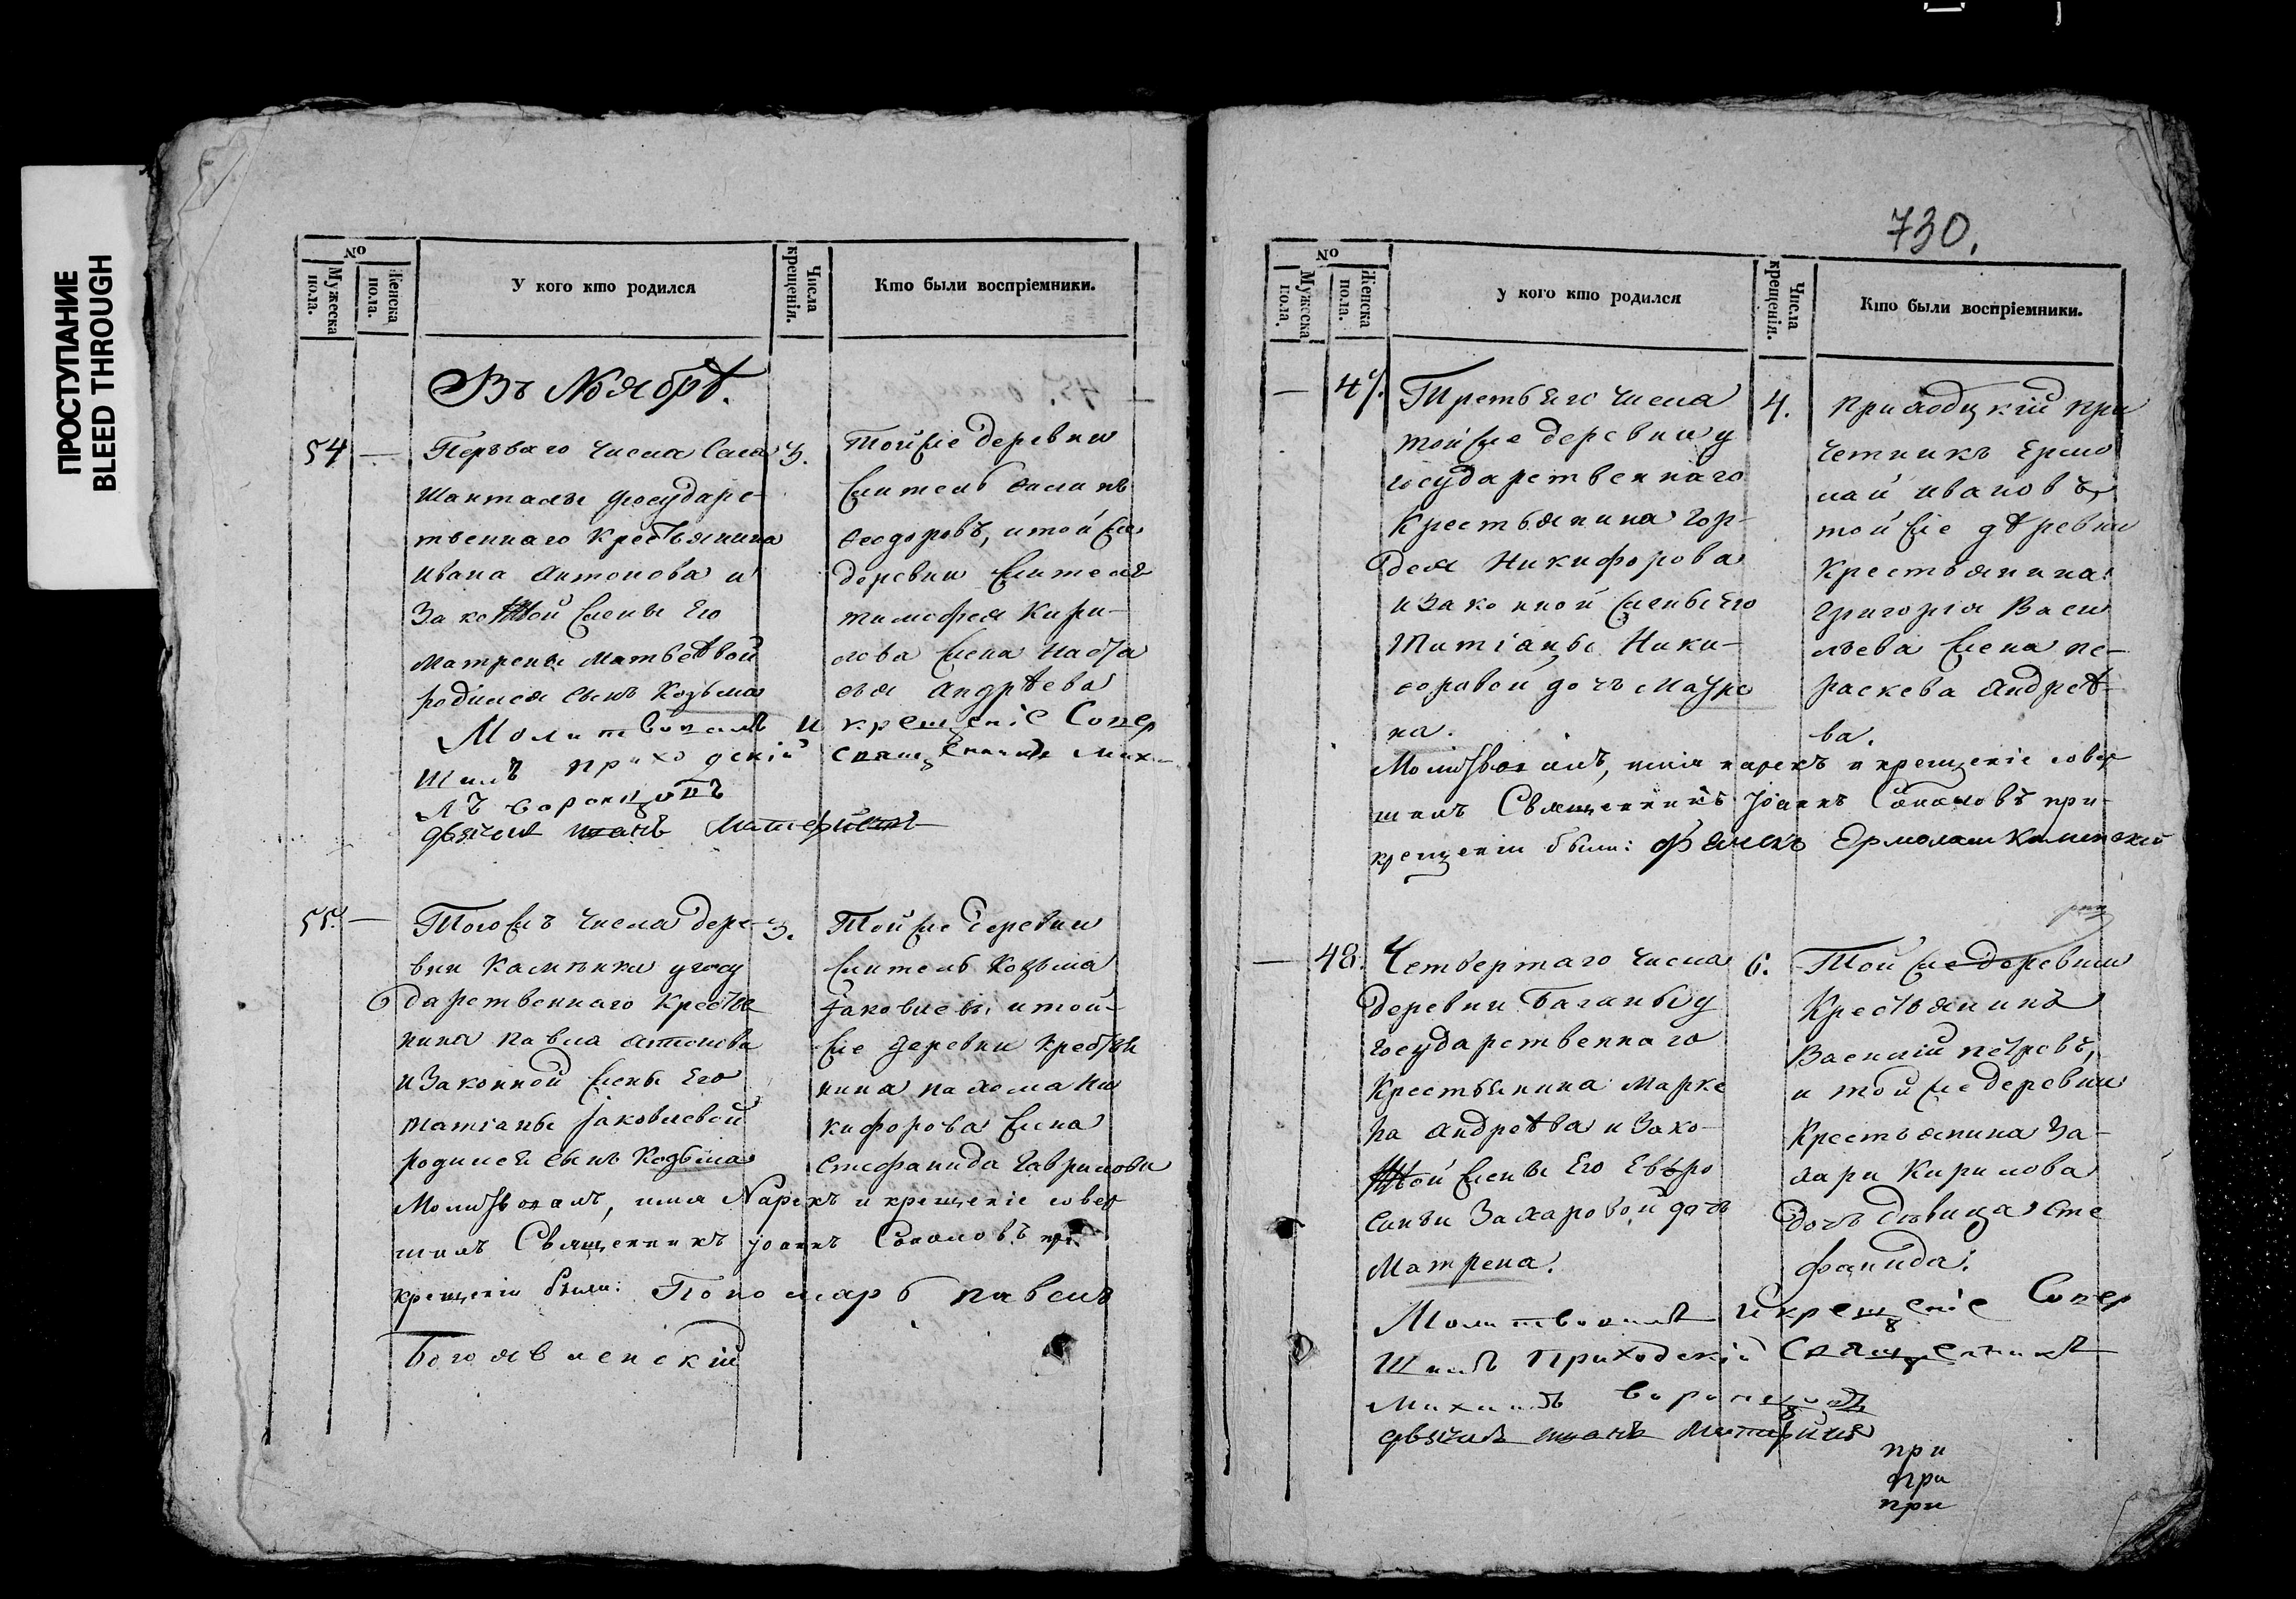 ПРОСТУПАНИЕ
BLEED THROUGH
№
Мужеска пола.
Женска пола.
У кого кто родился
Числа крещенія.
Кто были воспріемники.
Въ Ноябрѣ.
54 —
Перьваго числа Села
Шанталы Государс-
твеннаго Крестьянина
Ивана Антонова и
Законной жены Его
Матрены Матвѣевой
родился сынъ Козьма
3.
Тойже деревни
житель
Ѳеодоровъ, и той же
деревни жителя
Тимофея Кири-
лова жена Наста
сья Андрѣева
Молитвовалъ и крещеніе Совер
шилъ приходскій священникъ Миха
лъ Воронцовъ
дьячокъ
55. —
Тогожъ числа дере-
вни Камѣнки у госу
дарственнаго Кресть
нина Павла Антонова
и Законной жены Его
Татіаны Јаковлевой
родился сынъ Козьма
3.
Тойже деревни
житель Козьма
Јаковлевъ, и той-
же деревни Крестья
нина Пахома Ни
кифорова жена
Стефанида Гаврилова
Молитвовалъ, имя Нарекъ и крещеніе совер
шилъ Священникъ Јоаннъ Соколовъ при
крещеніи были: Пономарь Павелъ
Богоявленскій
730.
№
Мужеска пола.
Женска пола.
У кого кто родился
Числа крещенія.
Кто были воспріемники.
— 47.
Третьяго числа
тойже деревни у
государственнаго
Крестьянина Гор-
дея Никифорова
и законной жены Его
Татіаны Ники-
форовой дочь Матре
на.
4.
Приходцкій при
четникъ Ермо
лай Ивановъ,
той же дѣревни
Крестьянина
Григорія Васи
льева жена Пе-
раскева Андреѣ-
ва.
Молитвовалъ, имя нарекъ и крещеніе совер
шилъ Священникъ Јоаннъ Соколовъ при
крещеніи были: Дьячекъ Ермолай
— 48.
Четвертаго числа
деревни Баганы у
государственнаго
Крестьянина Марке
ла Андреѣва и Зако-
нной жены Его Евфро
синьи Захаровой дочь
Матрена.
6.
Той же деревни
Крестьянинъ
Василій Петровъ,
и той же деревни
Крестьянина За-
хара Кирилова
дочь дѣвица Сте
фанида.
Молитвовалъ и крещеніе Совер
шилъ Приходскій Священникъ
Михаилъ Воронцовъ
дьячокъ
при
при
при